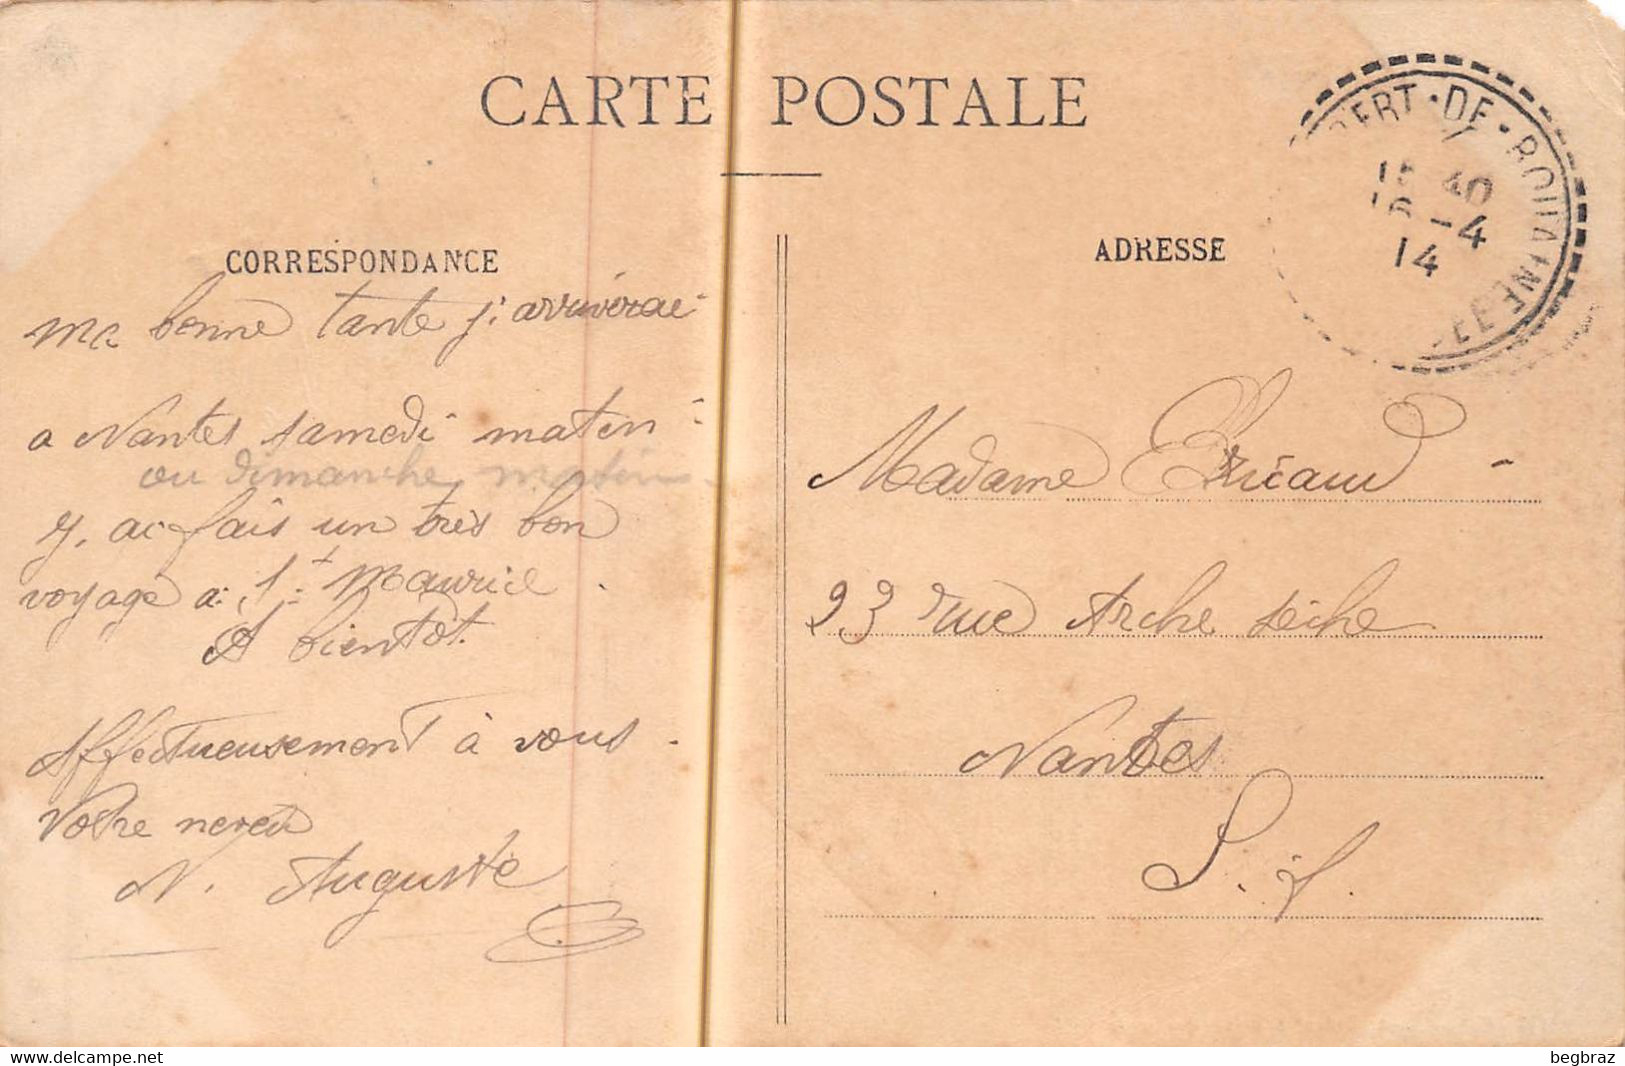 CARTE POSTALE
CORRESPONDANCE
ma bonne tante j'arriverai
a Nantes samedi maten
ou dimanche matin
fais un très bon
voyage a St Maurice
A bientôt.
Affectueusement à vous
Votre neveu
N. Auguste
BERT · DE · BOUAINE
40
-4
14
ADRESSE
Madame
23 rue Arche sèche
Nantes
L. i. f.
www.delcampe.net
begbraz